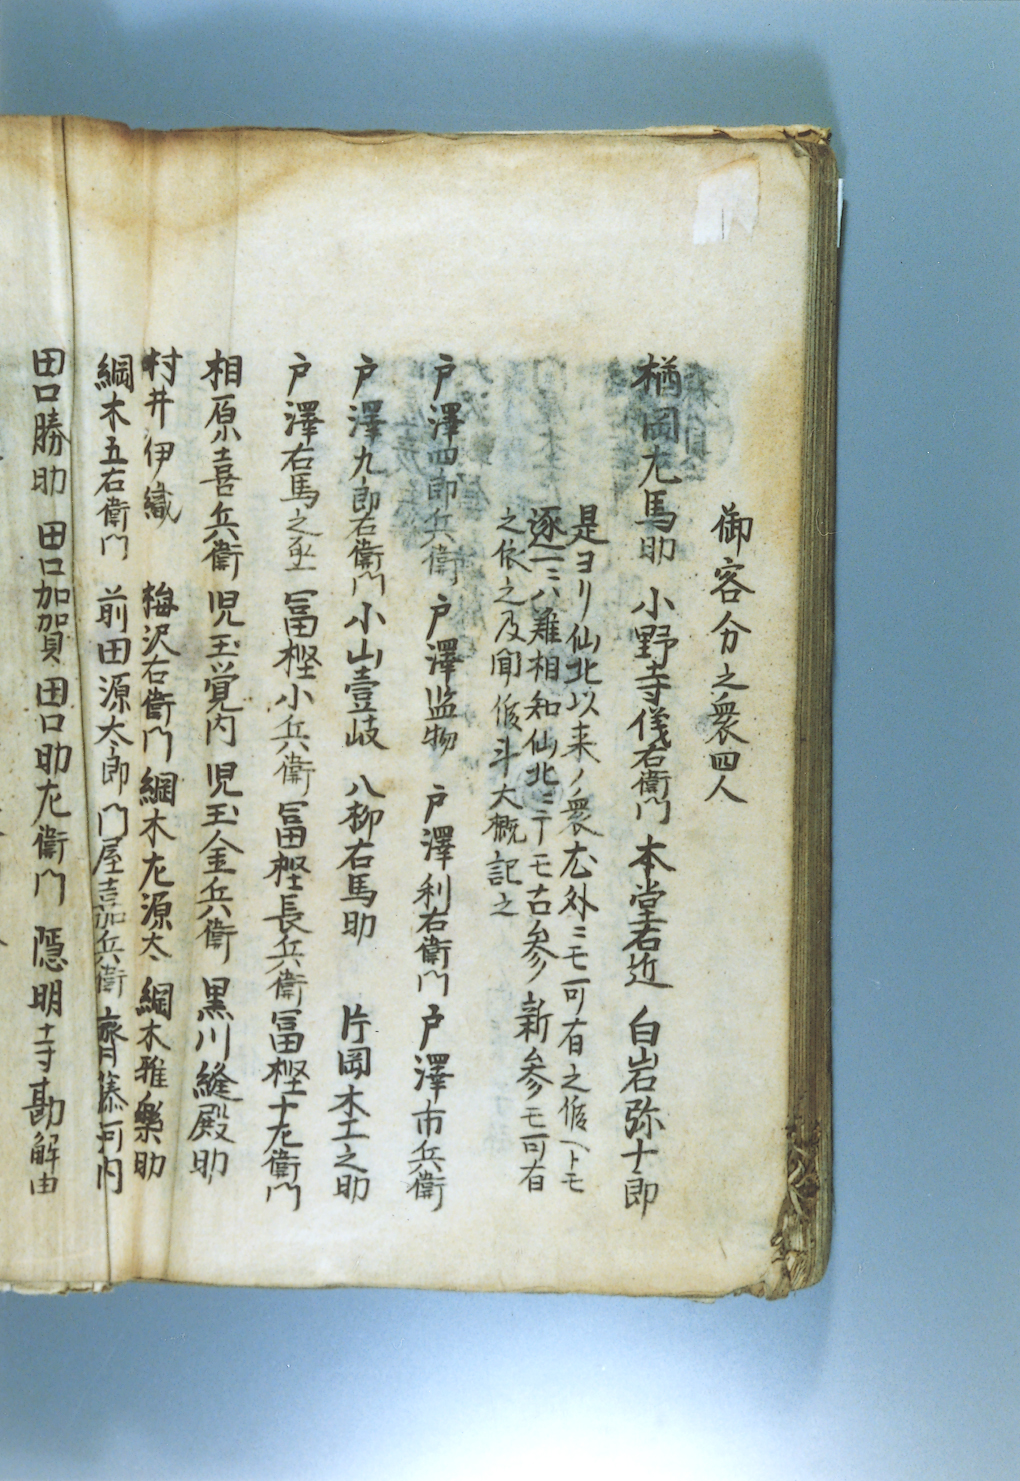 御客分之衆四人
楢岡左馬助 小野寺儀右衛門 本堂右近 白岩弥十郎
是ヨリ仙北以来ノ衆左外ニモ可有之候ヘトモ
逐一ニハ難相知仙北ニテモ古参新参モ可有
之依之及聞候斗大概記之
戸澤四郎兵衛 戸澤監物 戸澤利右衛門 戸澤市兵衛
戸澤九郎右衛門 小山壹岐 八柳右馬助 片岡木工之助
戸澤右馬之丞 冨樫小兵衛 冨樫長兵衛 冨樫十左衛門
相原喜兵衛 児玉覚内 児玉金兵衛 黒川縫殿助
村井伊織 梅沢右衛門 綱木左源太 綱木雅樂助
綱木五右衛門 前田源太郎 門屋嘉兵衛 齊藤河内
田口勝助 田口加賀 田口助左衛門 隠明寺勘解由